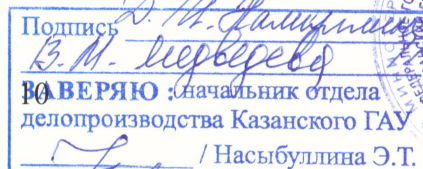 Подпись
В. М. Медведева
10
ЗАВЕРЯЮ : начальник отдела
делопроизводства Казанского ГАУ
/ Насыбуллина Э.Т.